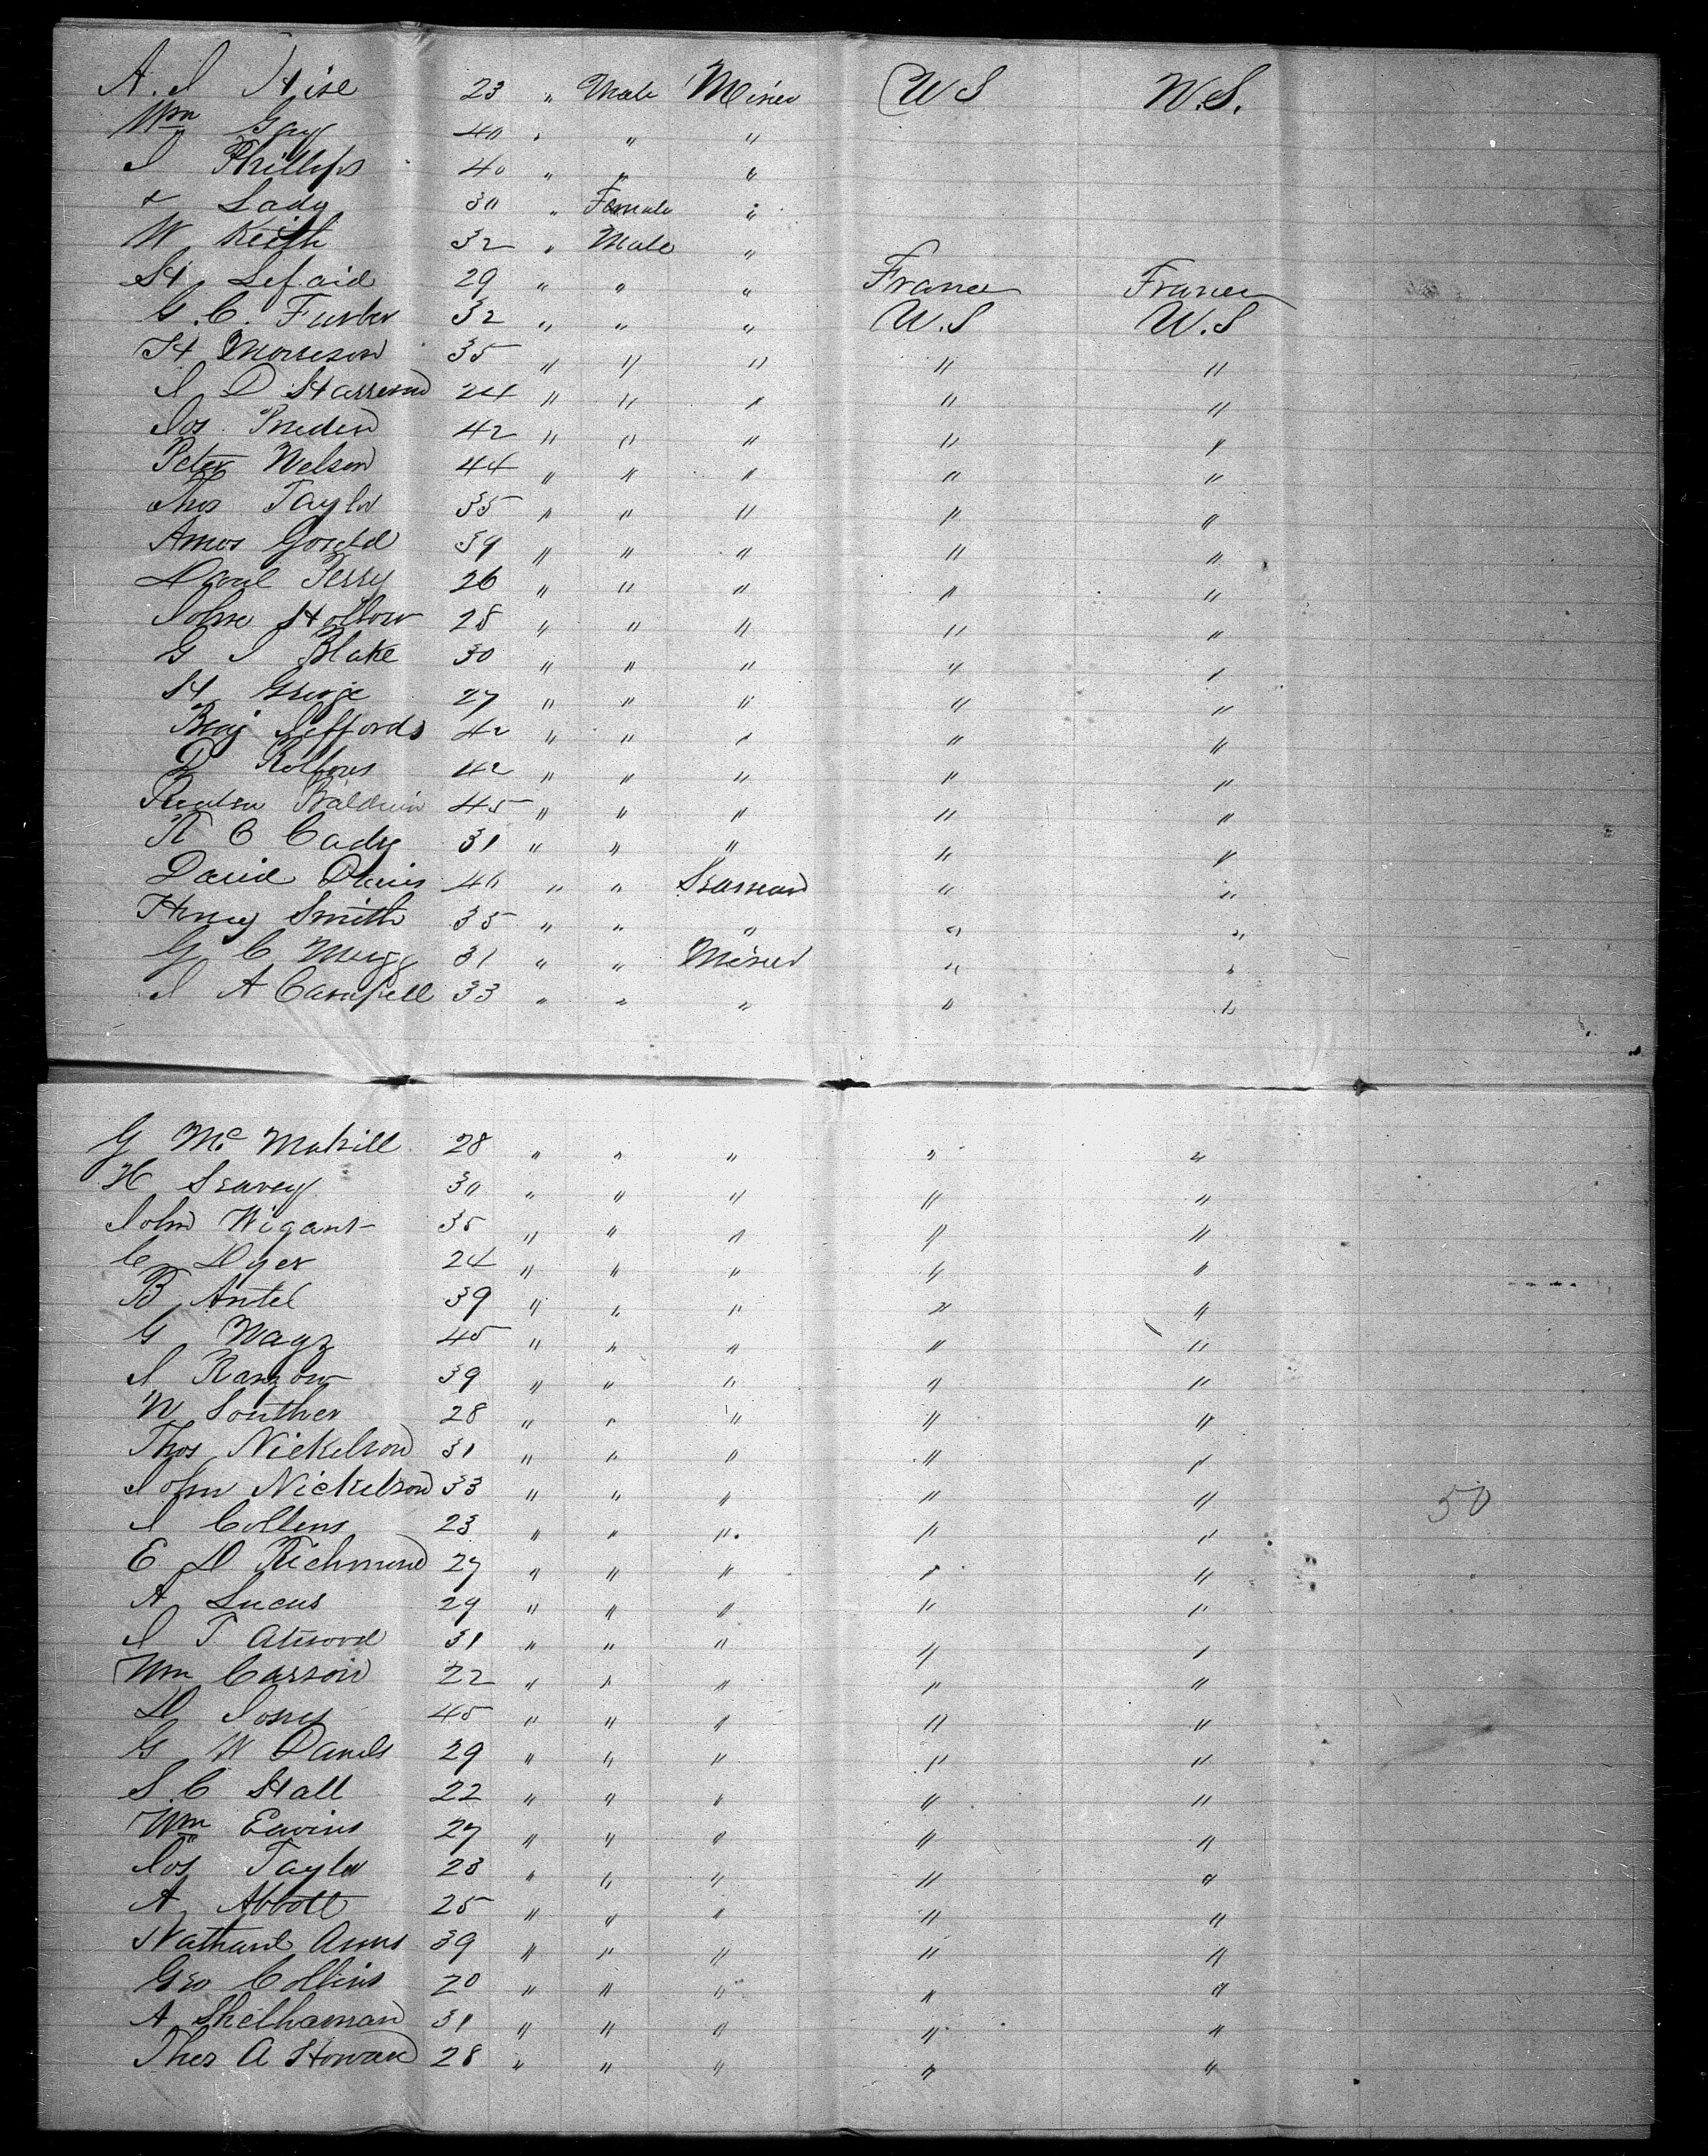 A. J Hise 23 " Male Miner U S U.S.
Wm Gay 40 " " "
J Phillips 40 " " "
& Lady 30 " Female "
W Keith 32 " Male "
H Lefaid 29 " " " France France
G. C. Furber 32 " " " U.S U.S
H Morrison 35 " " " " "
J D Harrison 24 " " " " "
Jos. 42 " " " " "
Peter Nelson 44 " " " " "
Thos Taylor 35 " " " " "
Amos Gould 39 " " " " "
Perry 26 " " " " "
John Holbow 28 " " " " "
G J Blake 30 " " " " "
H George 27 " " " " "
Benj Jeffords 42 " " " " "
D 42 " " " " "
Baldwin 45 " " " " "
R C Cady 31 " " " " "
David Davis 40 " " Seaman " "
Henry Smith 35 " " " " "
G C Mugg 31 " " Miner " "
J A Campell 33 " " " " "
G Mc Makill 28 " " " " "
H Seavey 30 " " " " "
John Wigant 35 " " " " "
C Dyer 24 " " " " "
B Antel 39 " " " " "
G Wagz 45 " " " " "
J Ranzow 39 " " " " "
W Souther 28 " " " " "
Thos Nickelson 31 " " " " "
John Nickelson 33 " " " " " 50
J Collens 23 " " " " "
E D Richmond 27 " " " " "
A Lucus 29 " " " " "
J T Atwood 31 " " " " "
Wm Carson 22 " " " " "
D Jones 45 " " " " "
G W Danels 29 " " " " "
S. C Hall 22 " " " " "
Wm Ewins 27 " " " " "
Jos Taylor 23 " " " " "
A Abbott 25 " " " " "
Nathanl Ames 39 " " " " "
Geo Collins 20 " " " " "
A Shelhaman 31 " " " " "
Thos A Howard 28 " " " " "